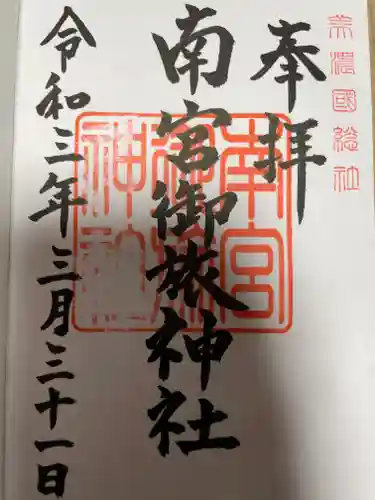 美濃國総社
奉拝
南宮御旅神社
南宮御旅神社
令和三年三月三十一日